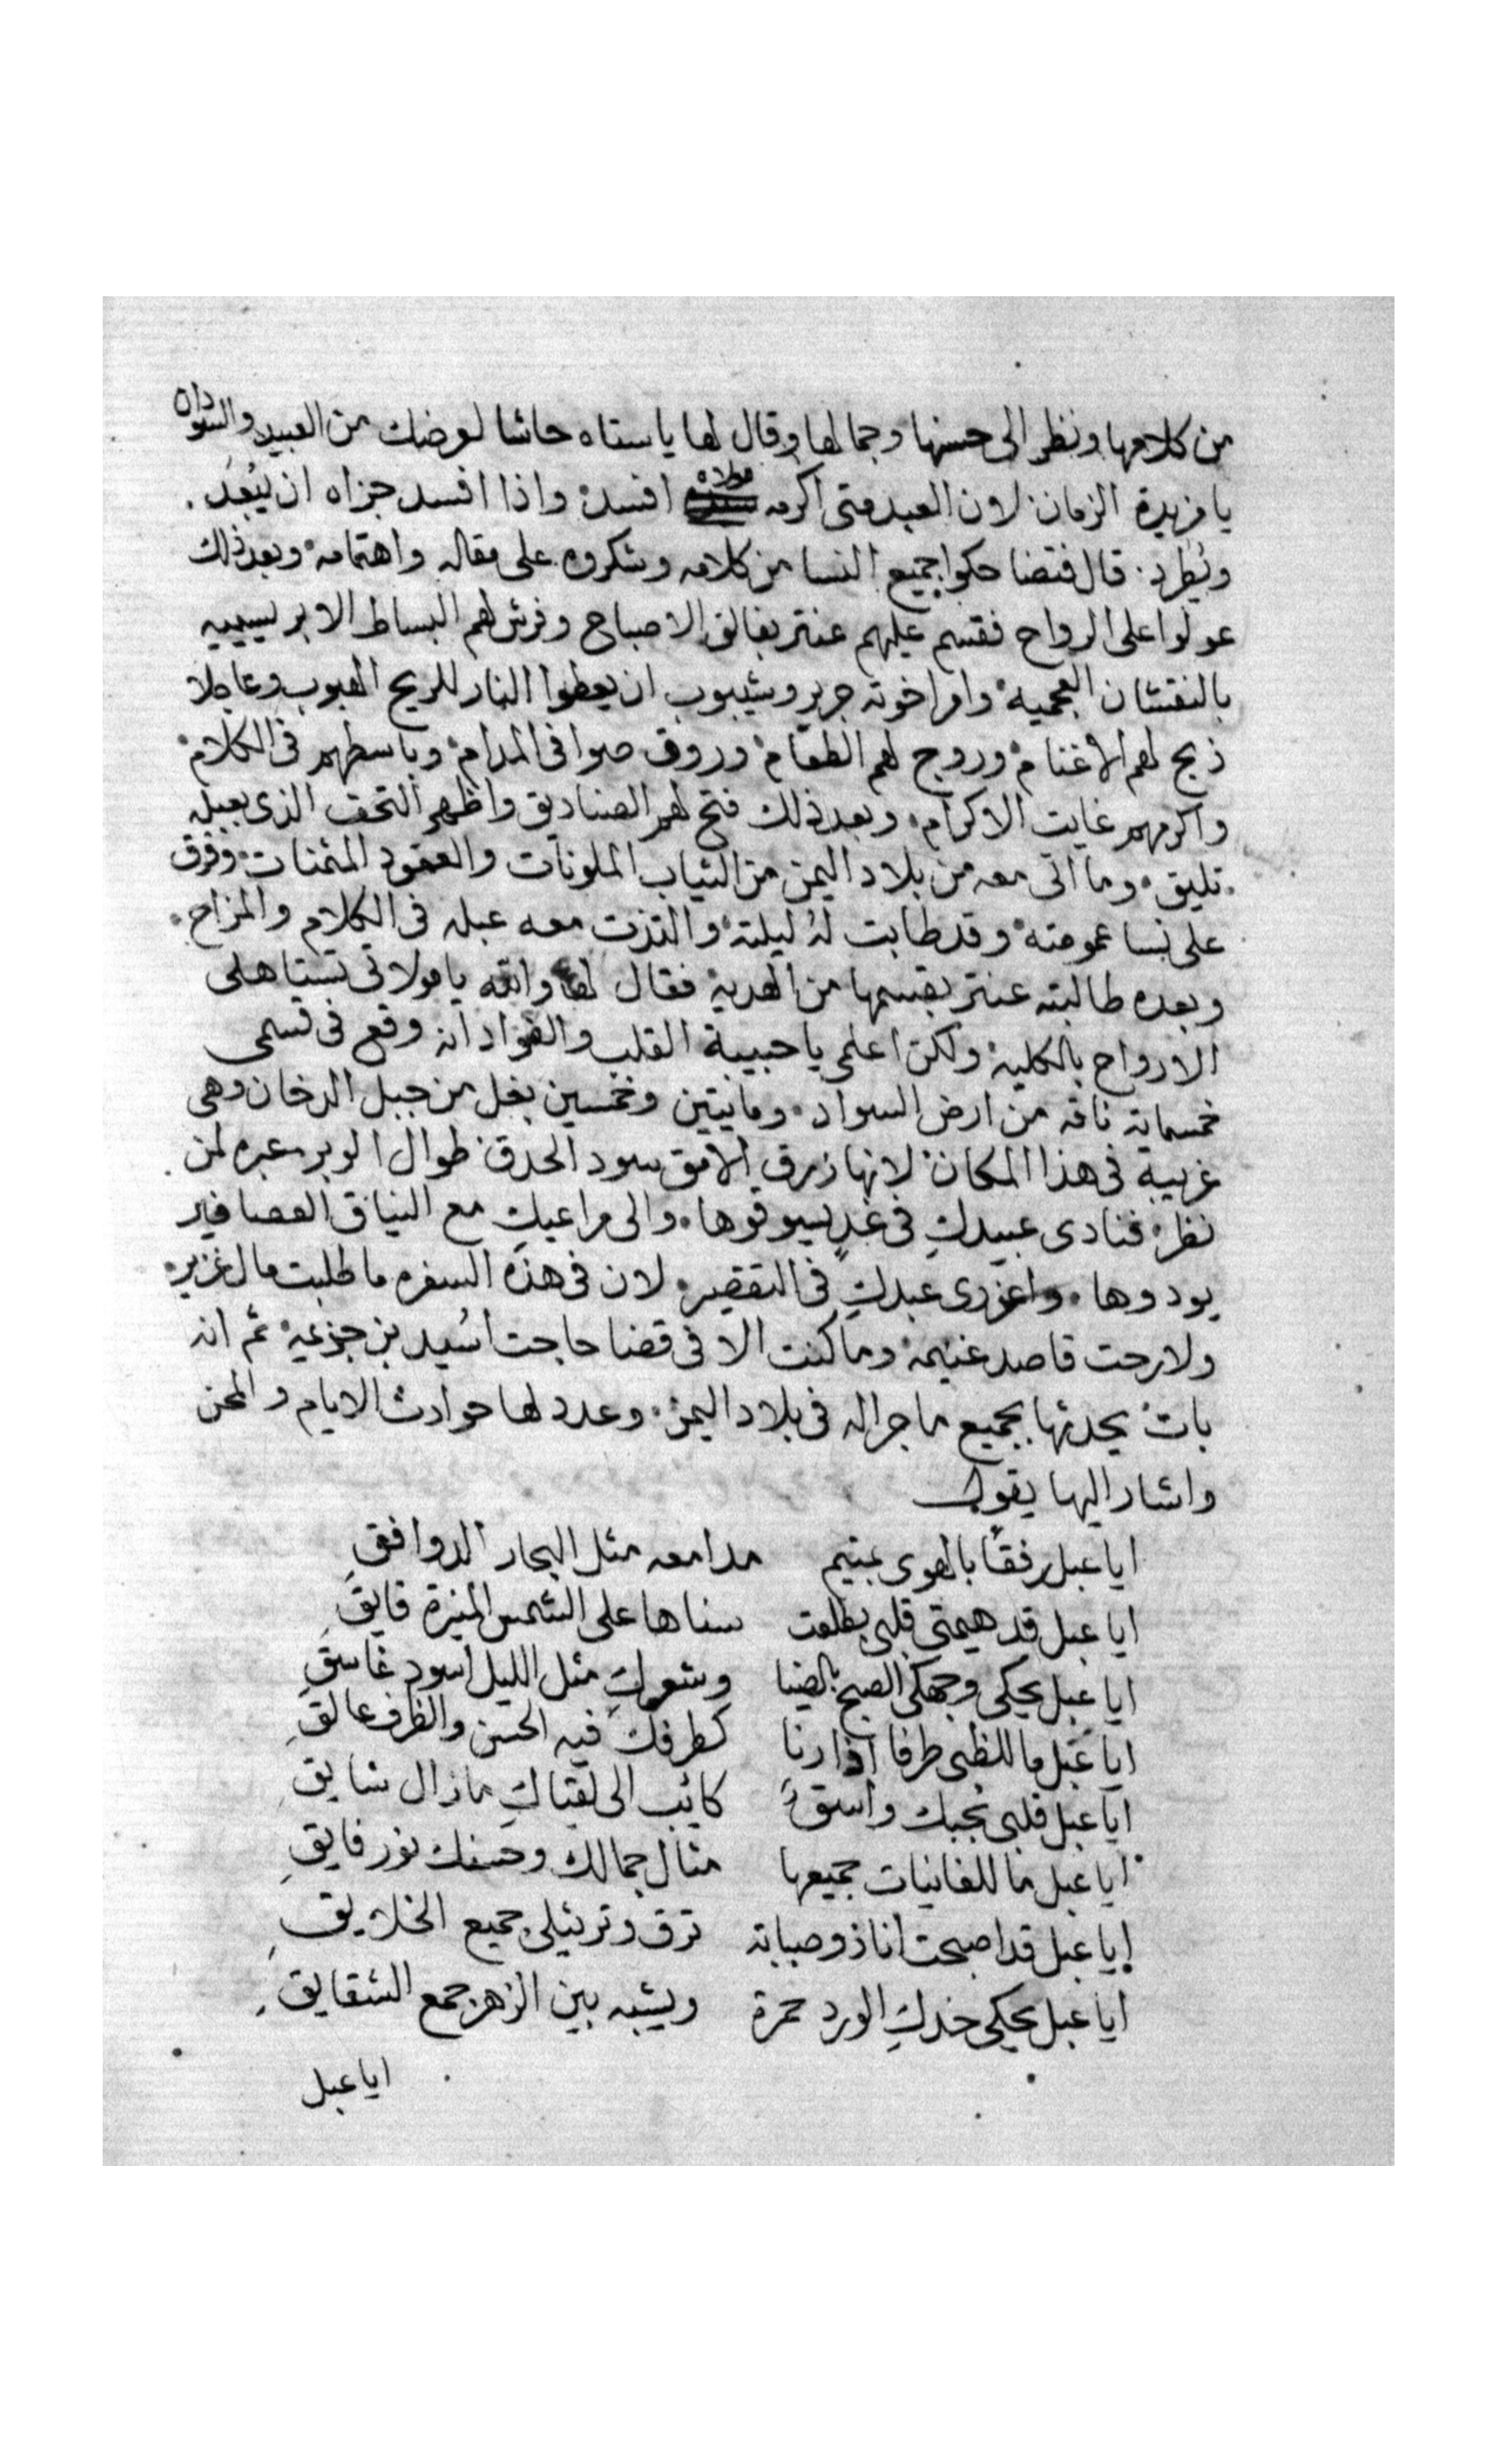 من كلامها ونظر الى حسنها وجمالها وقال لها ياستاه حاشا لعرضك من العبيد والسودان
يا فريدة الزمان لان العبد متى اكرمه مولاه افسد واذا افسد جزاه ان يُبْعَدَ
ويُطرد قال فتضاحكوا جميع النسا من كلامه وشكروه على مقاله واهتمامه وبعد ذلك
عولوا على الرواح فقسم عليهم عنتر بفالق الاصباح وفرش لهم البساط الابريسييه
بالنقشان العجمية وامر اخوته جرير وشيبوب ان يعطوا النار للريح الهبوب وعاجلا
ذبح لهم الاغنام وروج لهم الطعام وروق صوافى المدام وباسطهم فى الكلام
واكرمهم غايت الاكرام وبعد ذلك فتح لهم الصناديق واظهر التحف الذى بعبله
تليق وما اتى معه من بلاد اليمن من الثياب الملونات والعقود المثمنات وفرق
على نسا عمومته وقد طابت لهُ ليلته والتذت معه عبله فى الكلام والمزاح
وبعده طالبته عنتر بقسمها من الهدية فقال لها والله يا مولاتى تستاهلى
الارواح بالكلية ولكن اعلمى يا حبيبة القلب والفؤاد انه وقع فى قسمى
خمسماية ناقه من ارض السواد ومايتين وخمسين بغل من جبل الدخان وهى
غريبة فى هذا المكان لانها زرق الامق سود الحدق طوال الوبر عبره لمن
نظر فنادى عبيدكِ فى غدٍ يسوقوها والى مراعيكِ مع النياق العصافير
يودوها واعزرى عبدكِ فى التقصير لان فى هذه السفره ما طلبت مال غزير
ولا رحت قاصد غنيمه وما كنت الا فى قضا حاجت اسُيد بن جزعيه ثم انه
بات يحدثها بجميع ما جرا له فى بلاد اليمن وعدد لها حوادث الايام والمحن
واشار اليها يقول
ايا عبل رفقاً بالهوى بمتيم مدامعه مثل البحار الدوافقِ
ايا عبل قد هيمتى قلبى بطلعت سناها على الشمس المنيرة فايقِ
ايا عبل يحكى وجهكى الصبح بالضيا وشعركِ مثل الليل اسود غاسقِ
ايا عبل ما للظبى طرفا اذا رنا كطرفك فيه الحسن والظرف عالقِ
ايا عبل قلبى بحبك واسقٌ كايُب الى لقياكِ مازال شايقِ
ايا عبل ما للغانيات جميعها مثال جمالك وحسنك نور فايقِ
ايا عبل قد اصبحت انا ذو صبابة ترق وترثيلى جميع الخلايقِ
ايا عبل يحكى خدكِ الورد حمرة ويشبه بين الزهر جمع الشقايقِ
ايا عبل